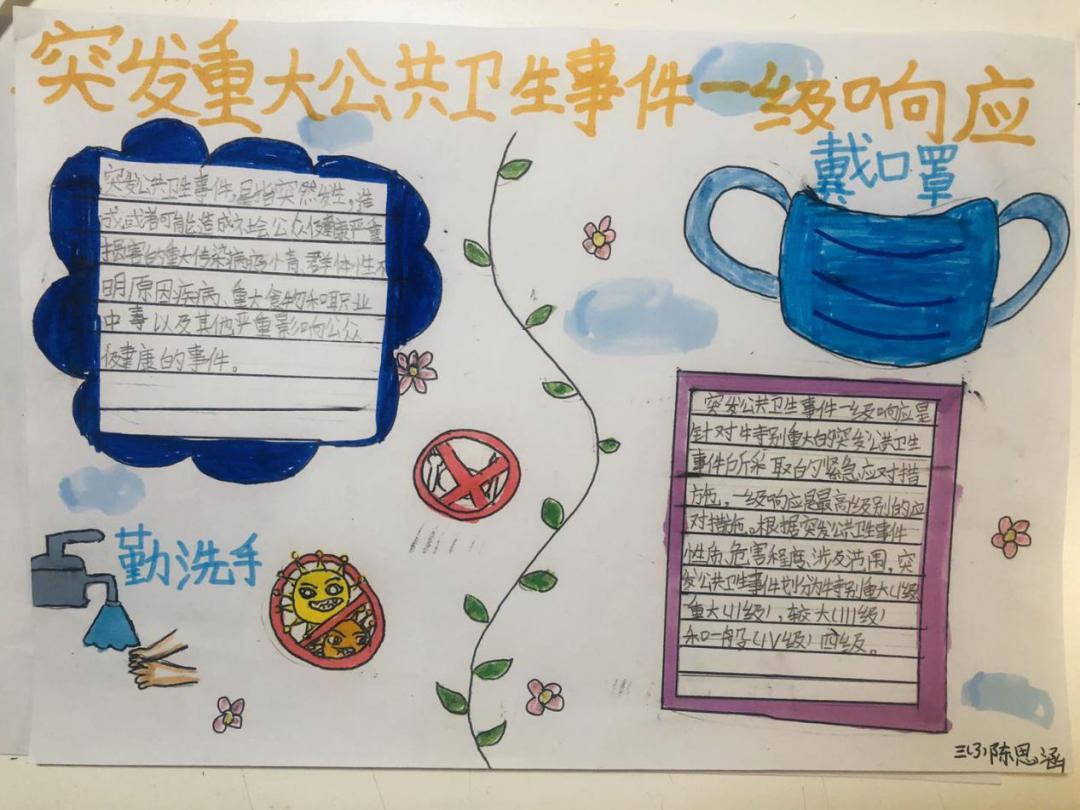 突发重大公共卫生事件一级响应
戴口罩
突发公共卫生事件,是指突然发生,造
成或者可能造成社会公众健康严重
损害的重大传染病疫情、群体性不
明原因疾病、重大食物和职业
中毒以及其他严重影响公众
健康的事件。
突发公共卫生事件一级响应是
针对特别重大的突发公共卫生
事件所采取的紧急应对措
施。一级响应是最高级别的应
对措施。根据突发公共卫生事件
性质、危害程度、涉及范围,突
发公共卫生事件划分为特别重大(I级
重大(II级),较大(III级)
和一般(IV级)四级。
勤洗手
陈思涵